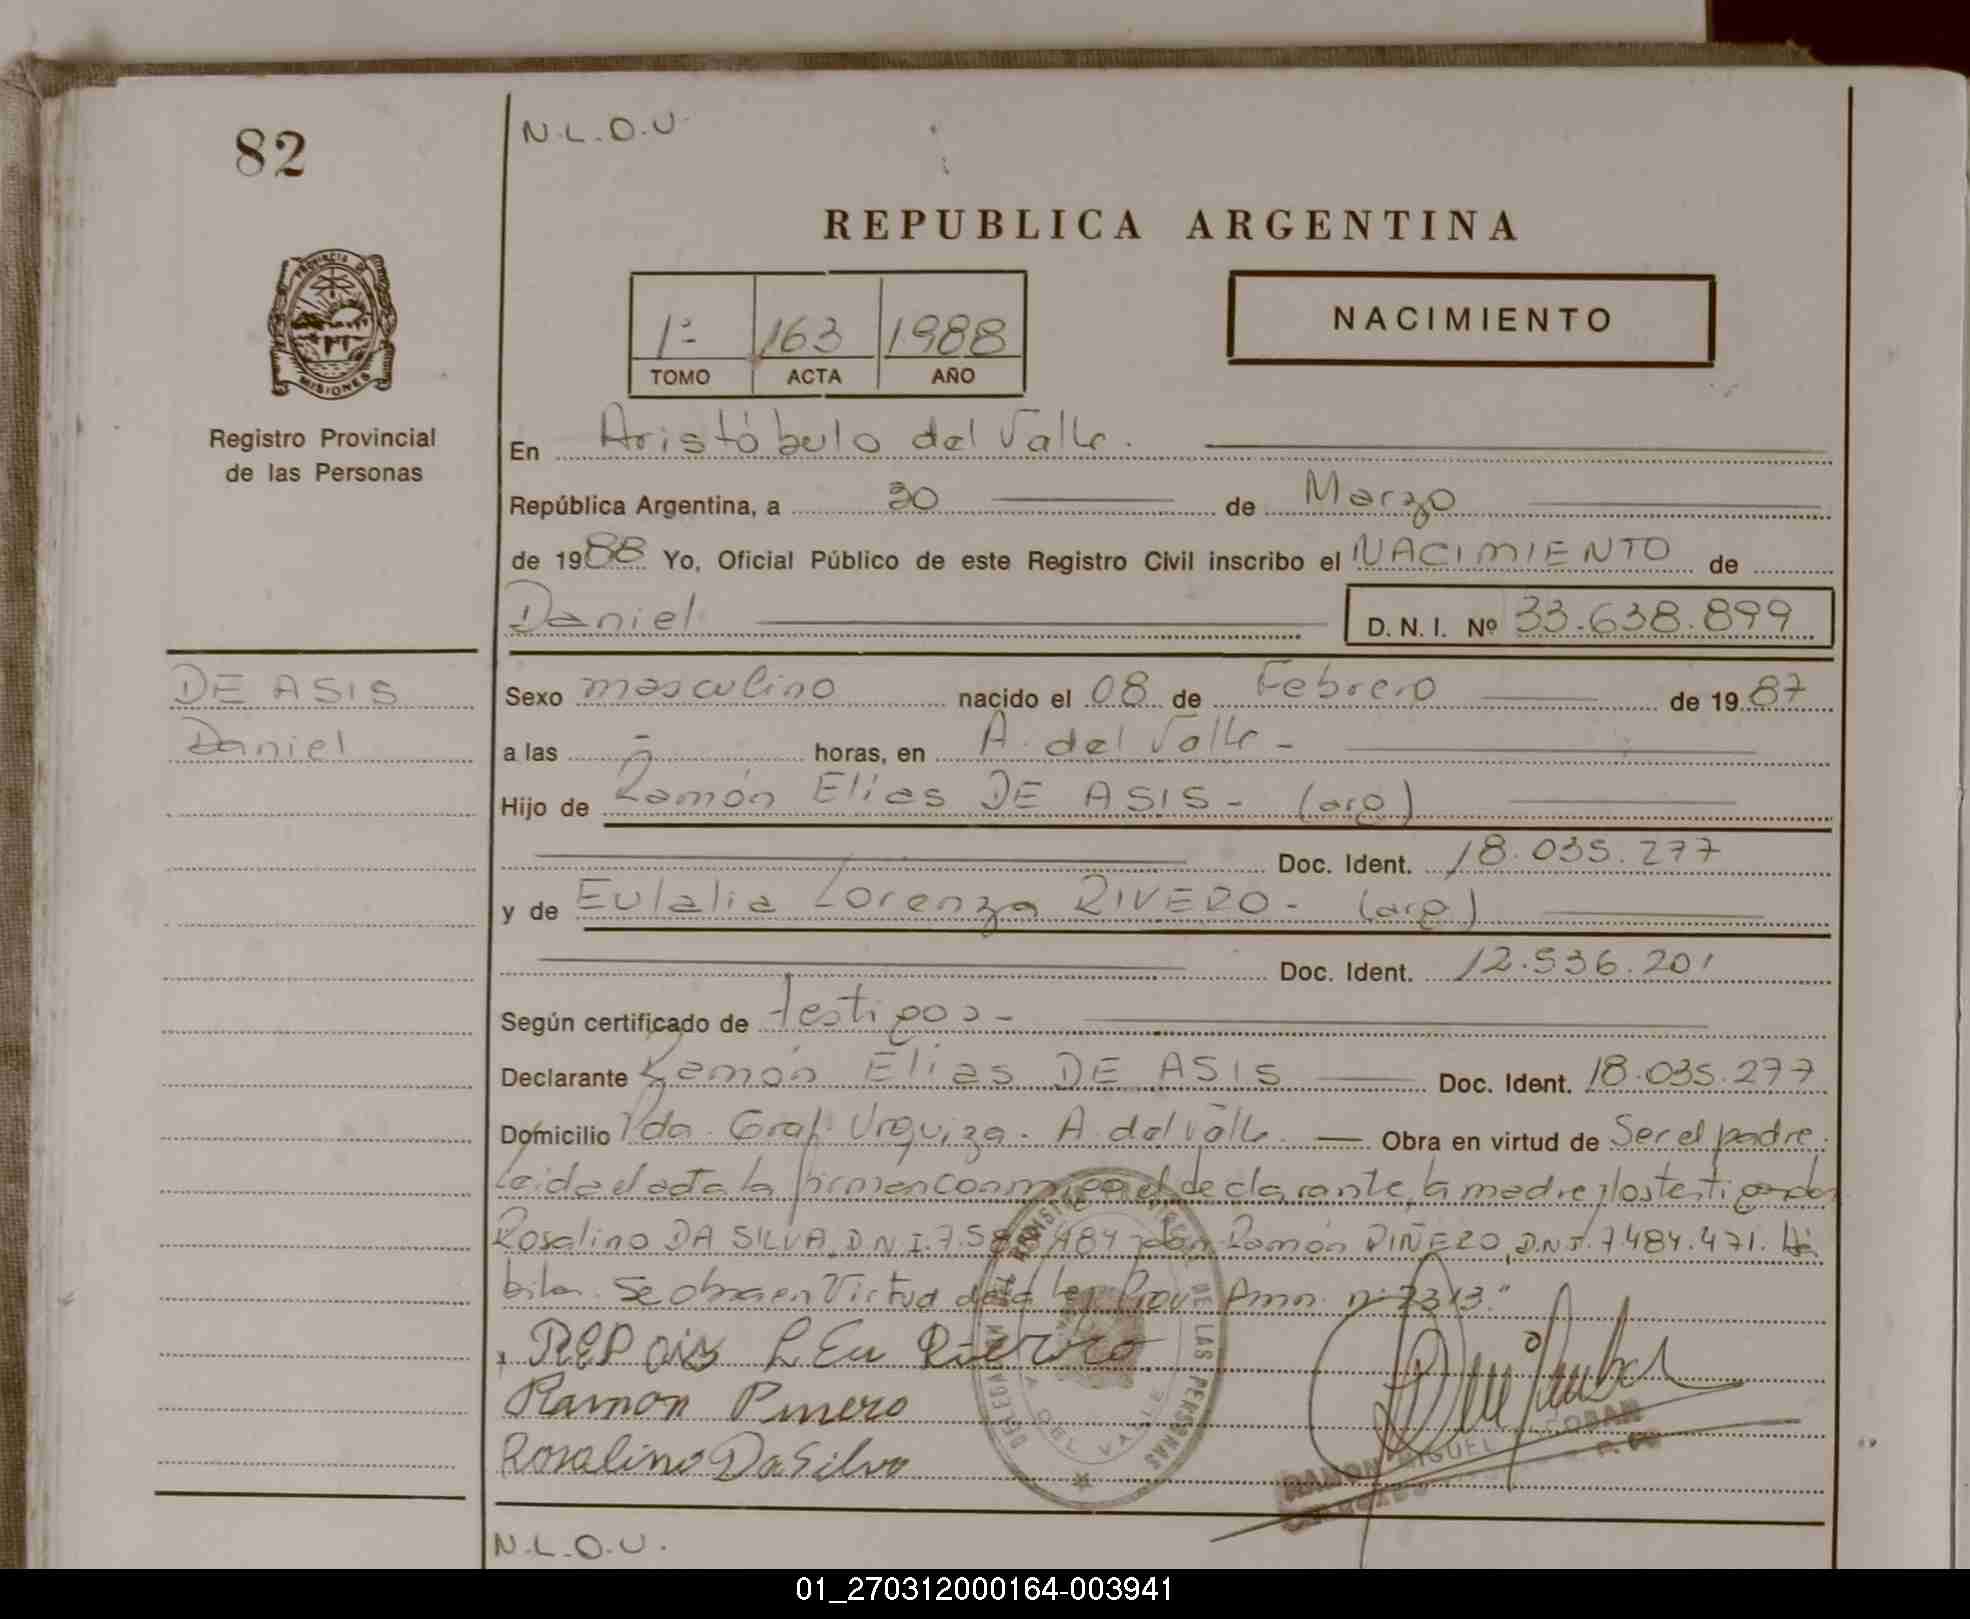 82
N.L.O.U.
REPUBLICA ARGENTINA
PROVINCIA DE
MISIONES
Registro Provincial
de las Personas
1º 163 1988
TOMO ACTA AÑO
NACIMIENTO
En Aristóbulo del Valle.
República Argentina, a 30 de Marzo
de 1988 Yo, Oficial Público de este Registro Civil inscribo el NACIMIENTO de
Daniel D.N.I. Nº 33.638.899
DE ASIS
Daniel
Sexo masculino nacido el 08 de Febrero de 1987
a las - horas, en A. del Valle -
Hijo de Ramón Elias DE ASIS - (arg)
Doc. Ident. 18.035.277
y de Eulalia Lorenza RIVERO - (arg)
Doc. Ident. 12.536.201
Según certificado de testigos -
Declarante Ramón Elias DE ASIS Doc. Ident. 18.035.277
Domicilio Pda. Gral. Urquiza. A. del Valle. Obra en virtud de Ser el padre.
Leida el acta la firman conmigo el declarante, la madre y los testigos don
Rosalino DA SILVA, D.N.I. 7.58 484 y don Ramón PIÑERO, D.N.I. 7.484.471. Há
biles. Se obra en Virtud de la Ley Prov. Amn. nº 2313."
Rivero
Ramon Pinero
Rosalino Da Silva
DELEGACION REGISTRO PROVINCIAL DE LAS PERSONAS
A. DEL VALLE
RAMON MIGUEL ESCOBAR
N.L.O.U.
01_270312000164-003941